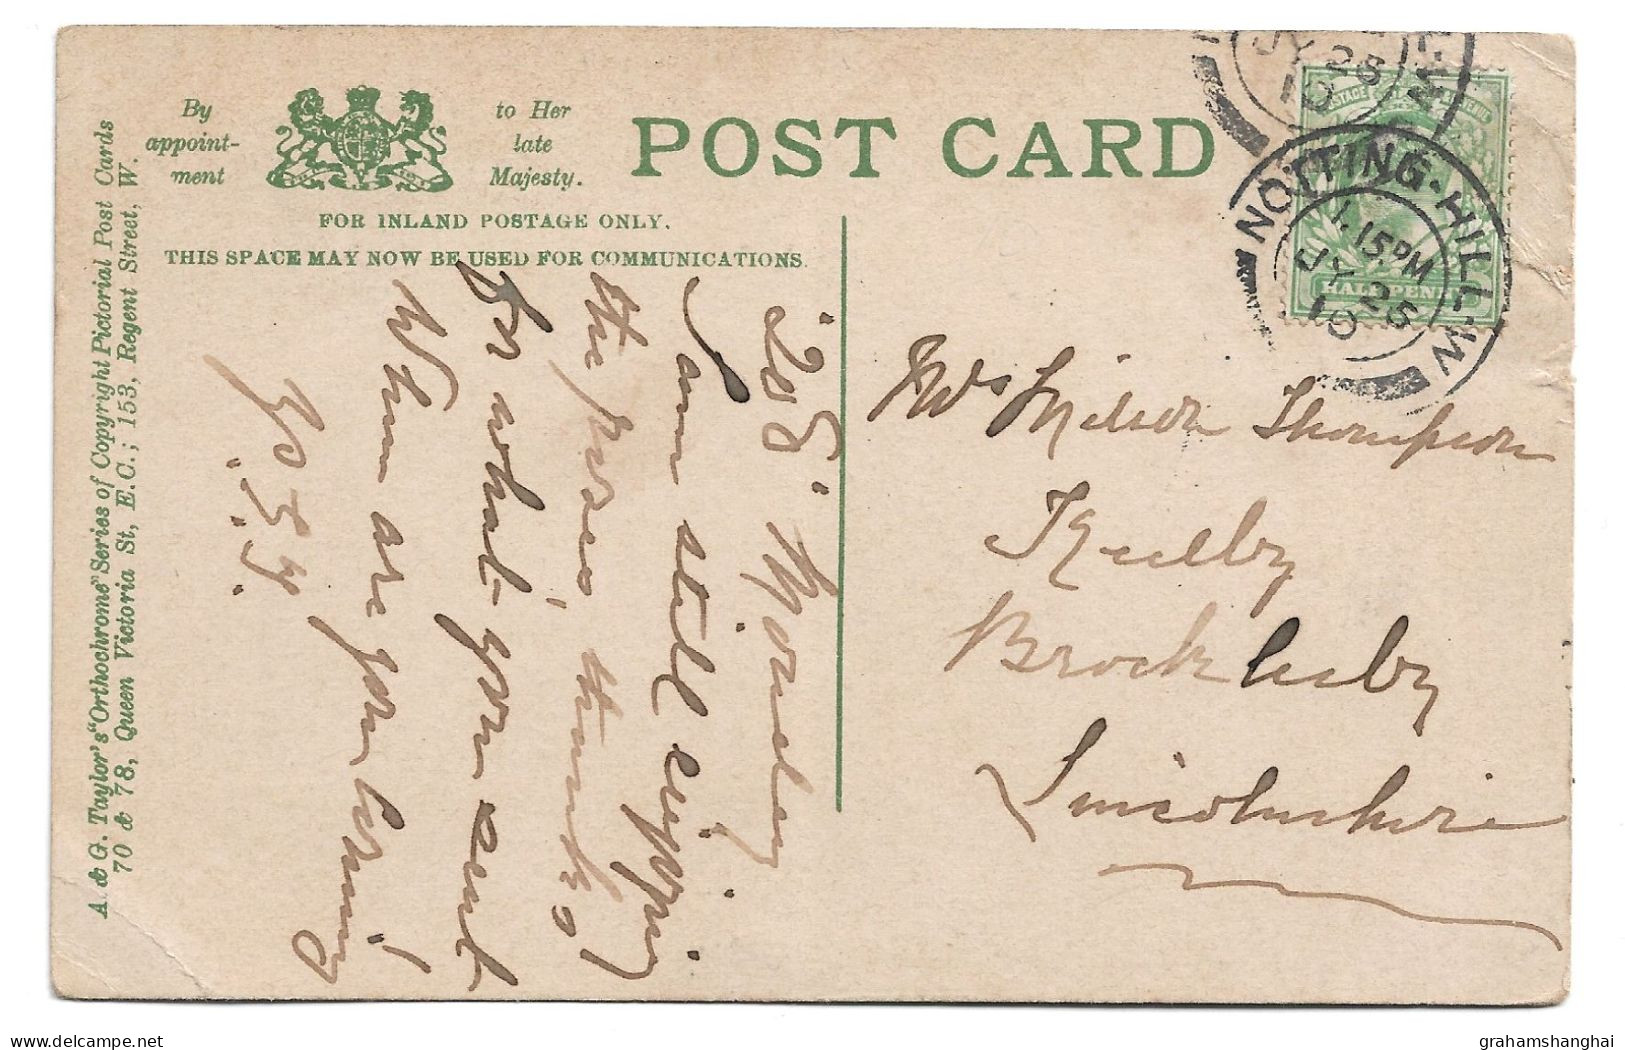 By
appoint-
ment
to Her
late
Majesty.
POST CARD
FOR INLAND POSTAGE ONLY.
THIS SPACE MAY NOW BE USED FOR COMMUNICATIONS.
A. & G. Taylor's "Orthochrome" Series of Copyright Pictorial Post Cards
70 & 78, Queen Victoria St, E.C.; 153, Regent Street, W.
Monday
I am still enjoying
the roses, thanks
for what you sent
When are you coming
JY 26
10
NOTTING-HILL-W
1.15 PM
JY 26
10
POSTAGE
HALFPENNY
Mrs Thompson
Keelby
Brocklesby
Lincolnshire
grahamshanghai